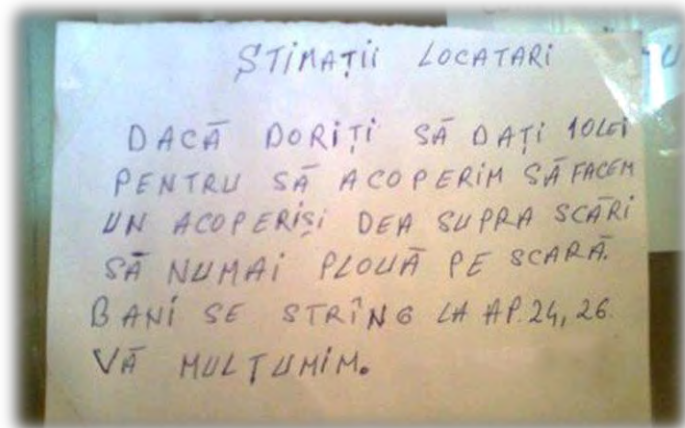 STIMAȚII LOCATARI
DACĂ DORIȚI SĂ DAȚI 10LEI
PENTRU SĂ ACOPERIM SĂ FACEM
UN ACOPERIȘI DEA SUPRA SCĂRI
SĂ NUMAI PLOUĂ PE SCARĂ.
BANI SE STRÎNG LA AP. 24, 26
VĂ MULȚUMIM.